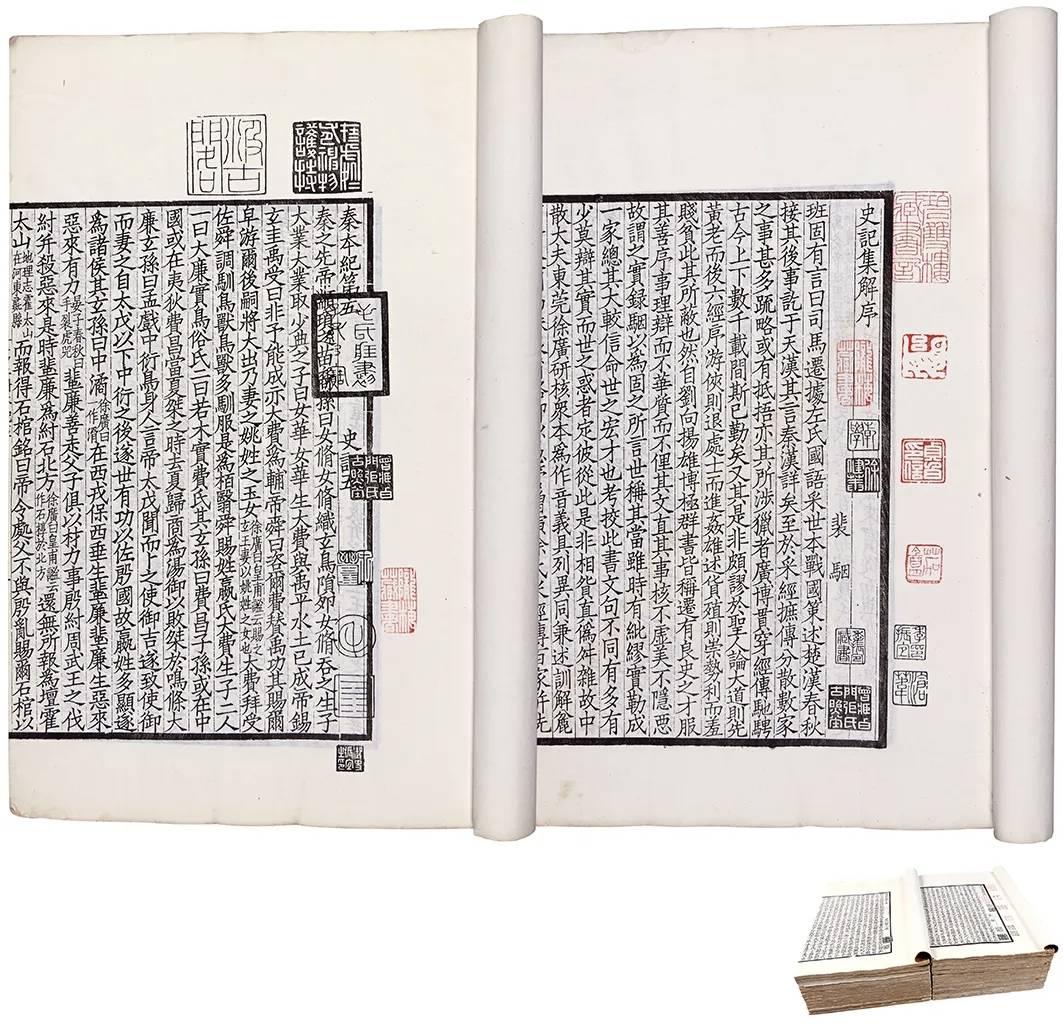 史記集解序
裴駰
班固有言曰司馬遷據左氏國語采世本戰國策述楚漢春秋
接其後事訖于天漢其言秦漢詳矣至於采經摭傳分散數家
之事甚多踈略或有抵捂亦其所涉獵者廣博貫穿經傳馳騁
古今上下數千載間斯已勤矣又其是非頗謬於聖人論大道則先
黃老而後六經序游俠則退處士而進姦雄述貨殖則崇勢利而羞
賤貧此其所蔽也然自劉向揚雄博極群書皆稱遷有良史之才服
其善序事理辯而不華質而不俚其文直其事核不虛美不隱惡
故謂之實録駰以為固之所言世稱其當雖時有紕繆實勒成
一家總其大較信命世之宏才也考校此書文句不同有多有
少莫辯其實而世之惑者定彼從此是非相貿真偽舛雜故中
散大夫東莞徐廣研核衆本爲作音義具列異同兼述訓解麄
史記五
秦本紀第五
秦之先帝顓頊之苗裔孫曰女脩女脩織玄鳥隕卵女脩吞之生子
大業大業取少典之子曰女華女華生大費與禹平水土已成帝錫
玄圭禹受曰非予能成亦大費爲輔帝舜曰咨爾費賛禹功其賜爾
皁游爾後嗣將大出乃妻之姚姓之玉女徐廣曰皇甫謐云賜之玄玉妻以姚姓之女也大費拜受
佐舜調馴鳥獸鳥獸多馴服是爲栢翳舜賜姓嬴氏大費生子二人
一曰大廉實鳥俗氏二曰若木實費氏其玄孫曰費昌子孫或在中
國或在夷狄費昌當夏桀之時去夏歸商爲湯御以敗桀於鳴條大
廉玄孫曰孟戲中衍鳥身人言帝太戊聞而卜之使御吉遂致使御
而妻之自太戊以下中衍之後遂世有功以佐殷國故嬴姓多顯遂
爲諸侯其玄孫曰中潏徐廣曰一作滑在西戎保西垂生蜚廉蜚廉生惡來
惡來有力晏子春秋曰手裂虎兕蜚廉善走父子俱以材力事殷紂周武王之伐
紂并殺惡來是時蜚廉爲紂石北方徐廣曰皇甫謐云作石椁於北方還無所報爲壇霍
太山地理志霍太山在河東彘縣而報得石棺銘曰帝令處父不與殷亂賜爾石棺以